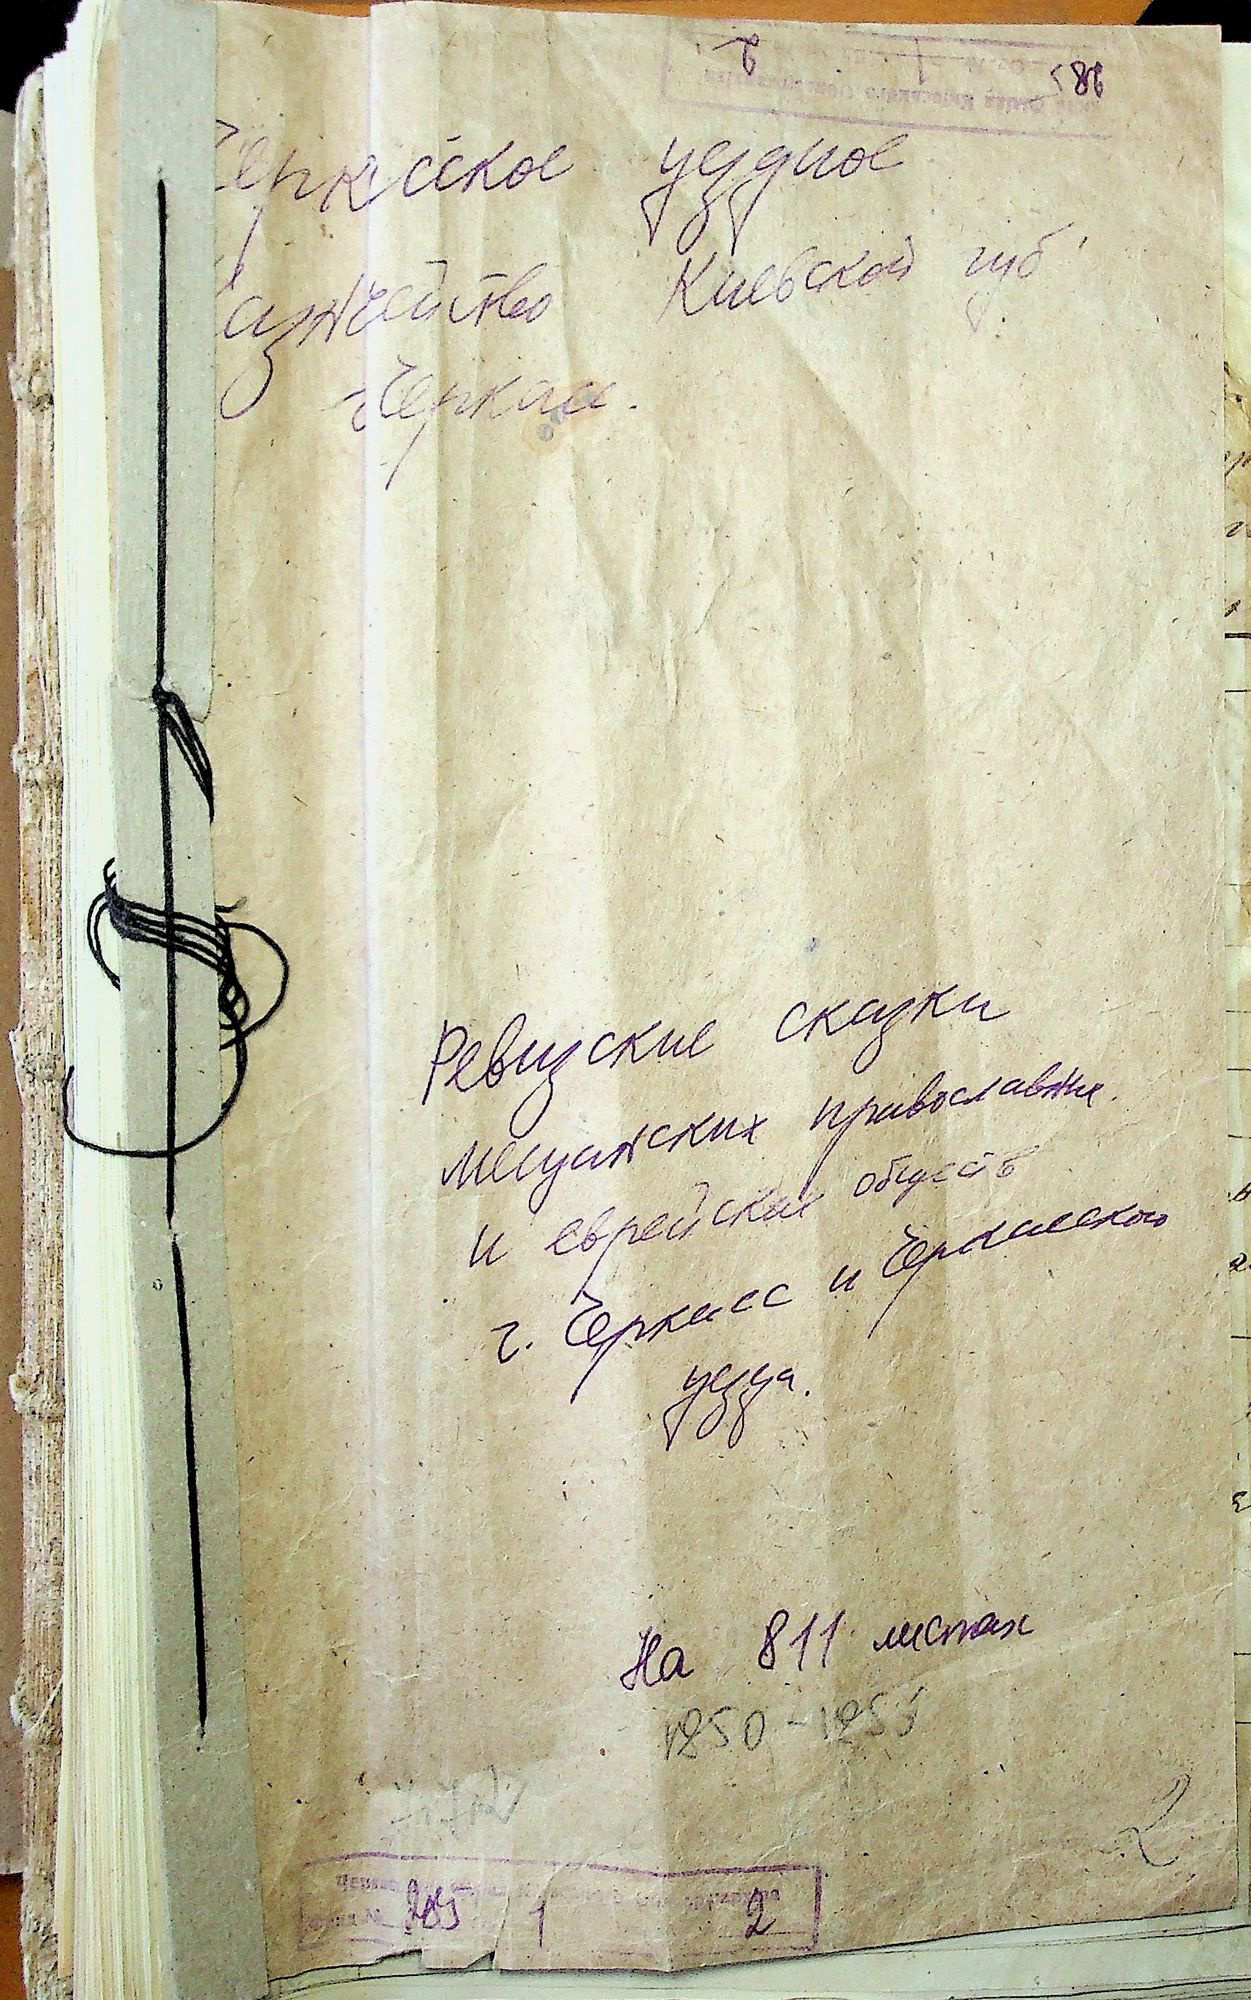 585
2
Черкасское уездное
Казначейство Киевской губ
г. Черкасы.
Ревизские сказки
мещанских православных
и еврейских обществ
г. Черкасс и Черкасского
уезда.
На 811 листах
1850-1853
2
285 1 2